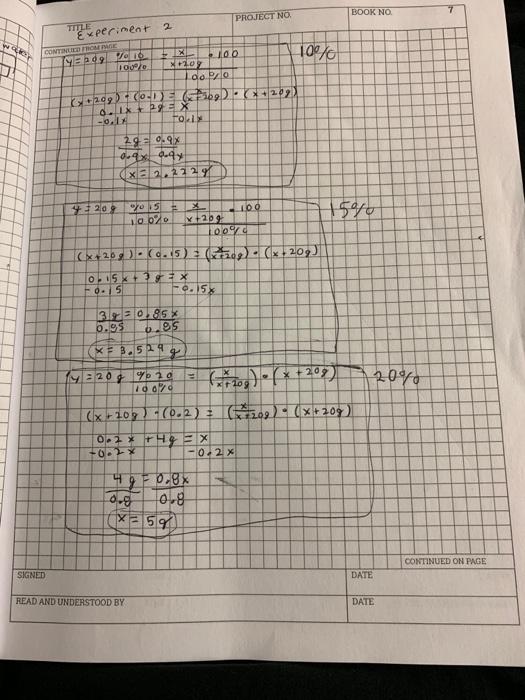 PROJECT NO.
BOOK NO. 7
TITLE Experiment 2
CONTINUED FROM PAGE
y = 20g %10 / 100% = x / x+20g • 100 / 100%
10%
(x+20g) • (0.1) = (x / x+20g) • (x+20g)
0.1x + 2g = x
-0.1x -0.1x
2g = 0.9x
0.9x 0.9x
x = 2.222g
y = 20g %15 / 100% = x / x+20g • 100 / 100%
15%
(x+20g) • (0.15) = (x / x+20g) • (x+20g)
0.15x + 3g = x
-0.15 -0.15x
3g = 0.85x
0.85 0.85
x = 3.529g
y = 20g %20 / 100% = (x / x+20g) • (x+20g)
20%
(x+20g) • (0.2) = (x / x+20g) • (x+20g)
0.2x + 4g = x
-0.2x -0.2x
4g = 0.8x
0.8 0.8
x = 5g
CONTINUED ON PAGE
SIGNED
DATE
READ AND UNDERSTOOD BY
DATE